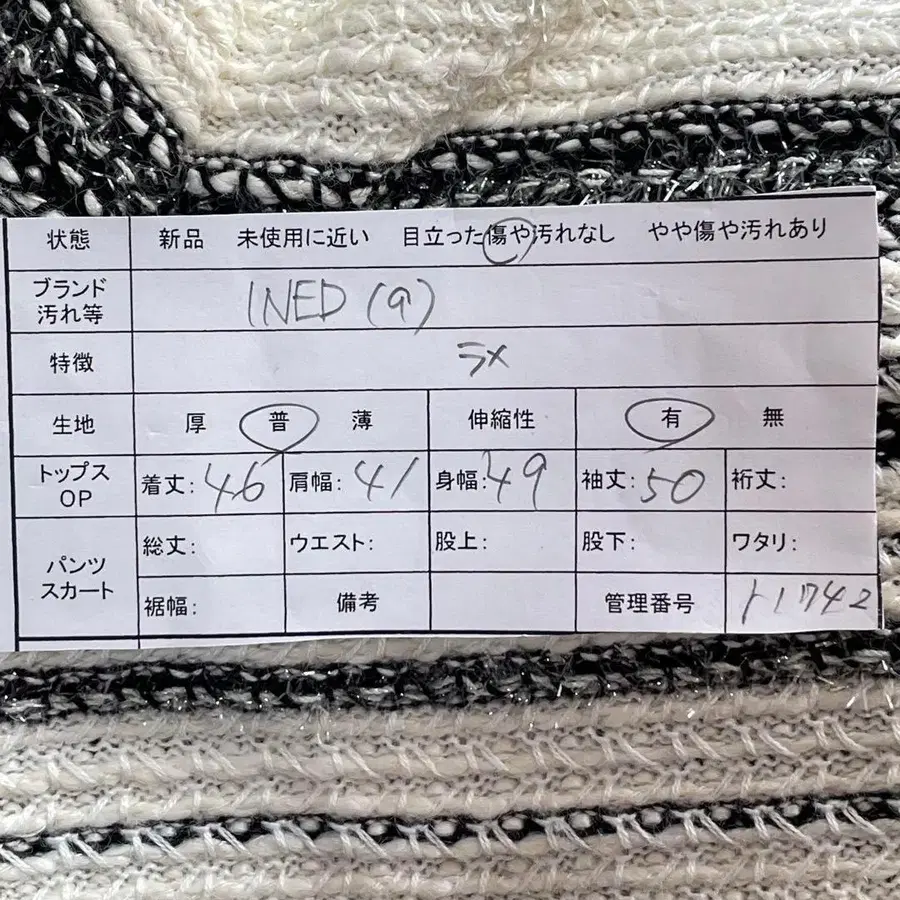 状態 新品 未使用に近い 目立った傷や汚れなし やや傷や汚れあり
ブランド
汚れ等 INED (9)
特徴 ラメ
生地 厚 普 薄 伸縮性 有 無
トップス
OP 着丈: 46 肩幅: 41 身幅: 49 袖丈: 50 裄丈:
パンツ
スカート 総丈: ウエスト: 股上: 股下: ワタリ:
裾幅: 備考 管理番号 ト1742